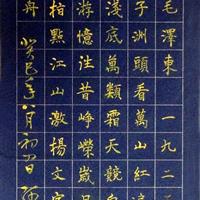 毛澤東 一九二
子洲頭看萬山紅
淺底萬類霜天競自
游憶往昔崢嶸歲月
指點江山激揚文字
舟
癸巳年八月初四日